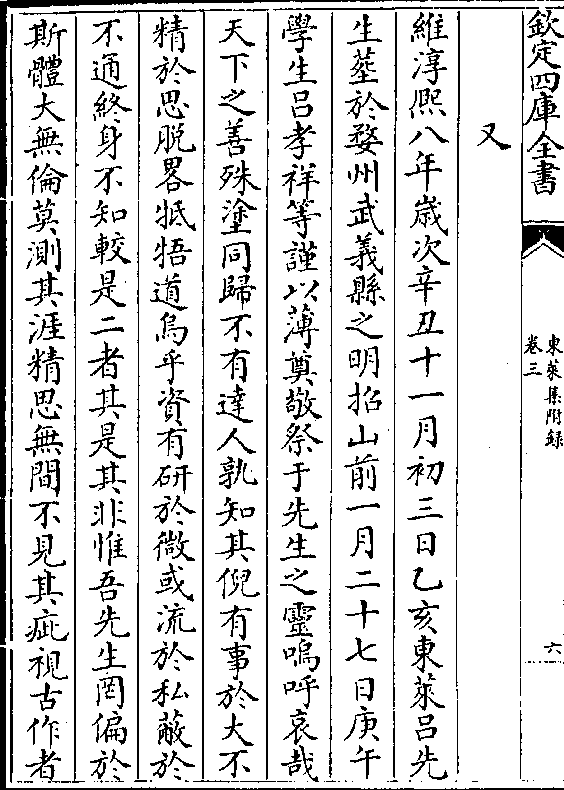 欽定四庫全書
東萊集附録
卷三
六
又
維淳熙八年歲次辛丑十一月初三日乙亥東萊呂先
生塟於婺州武義縣之明招山前一月二十七日庚午
學生呂孝祥等謹以薄奠敬祭于先生之靈嗚呼哀哉
天下之善殊塗同歸不有達人孰知其倪有事於大不
精於思脱畧牴牾道烏乎資有研於微或流於私蔽於
不通終身不知較是二者其是其非惟吾先生罔偏於
斯體大無倫莫測其涯精思無間不見其疵視古作者